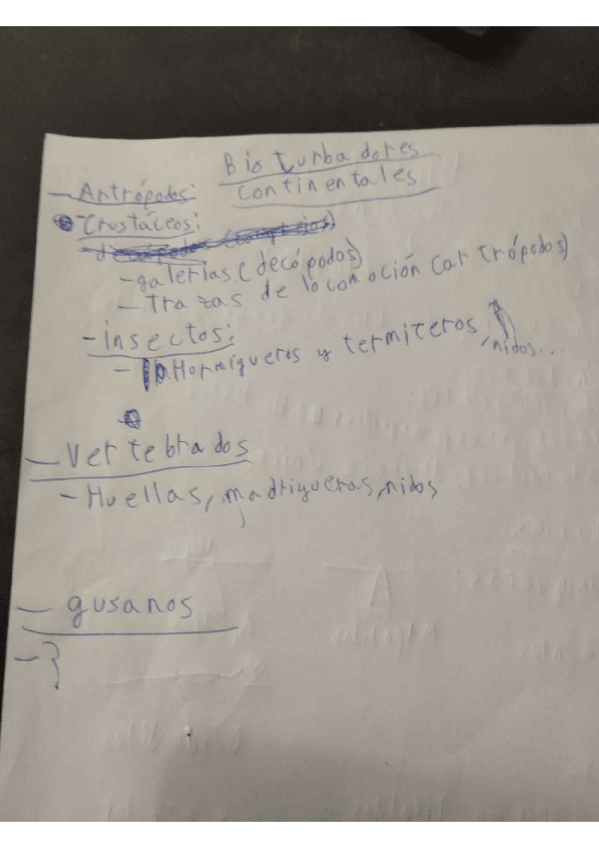 Bioturbadores
continentales
- Artrópodos:
Crustáceos:
- galerías (decópodos)
- Trazas de locomoción (artrópodos)
- insectos:
- Hormigueros y termiteros, nidos...
- Vertebrados
- Huellas, madrigueras, nidos
- gusanos
-